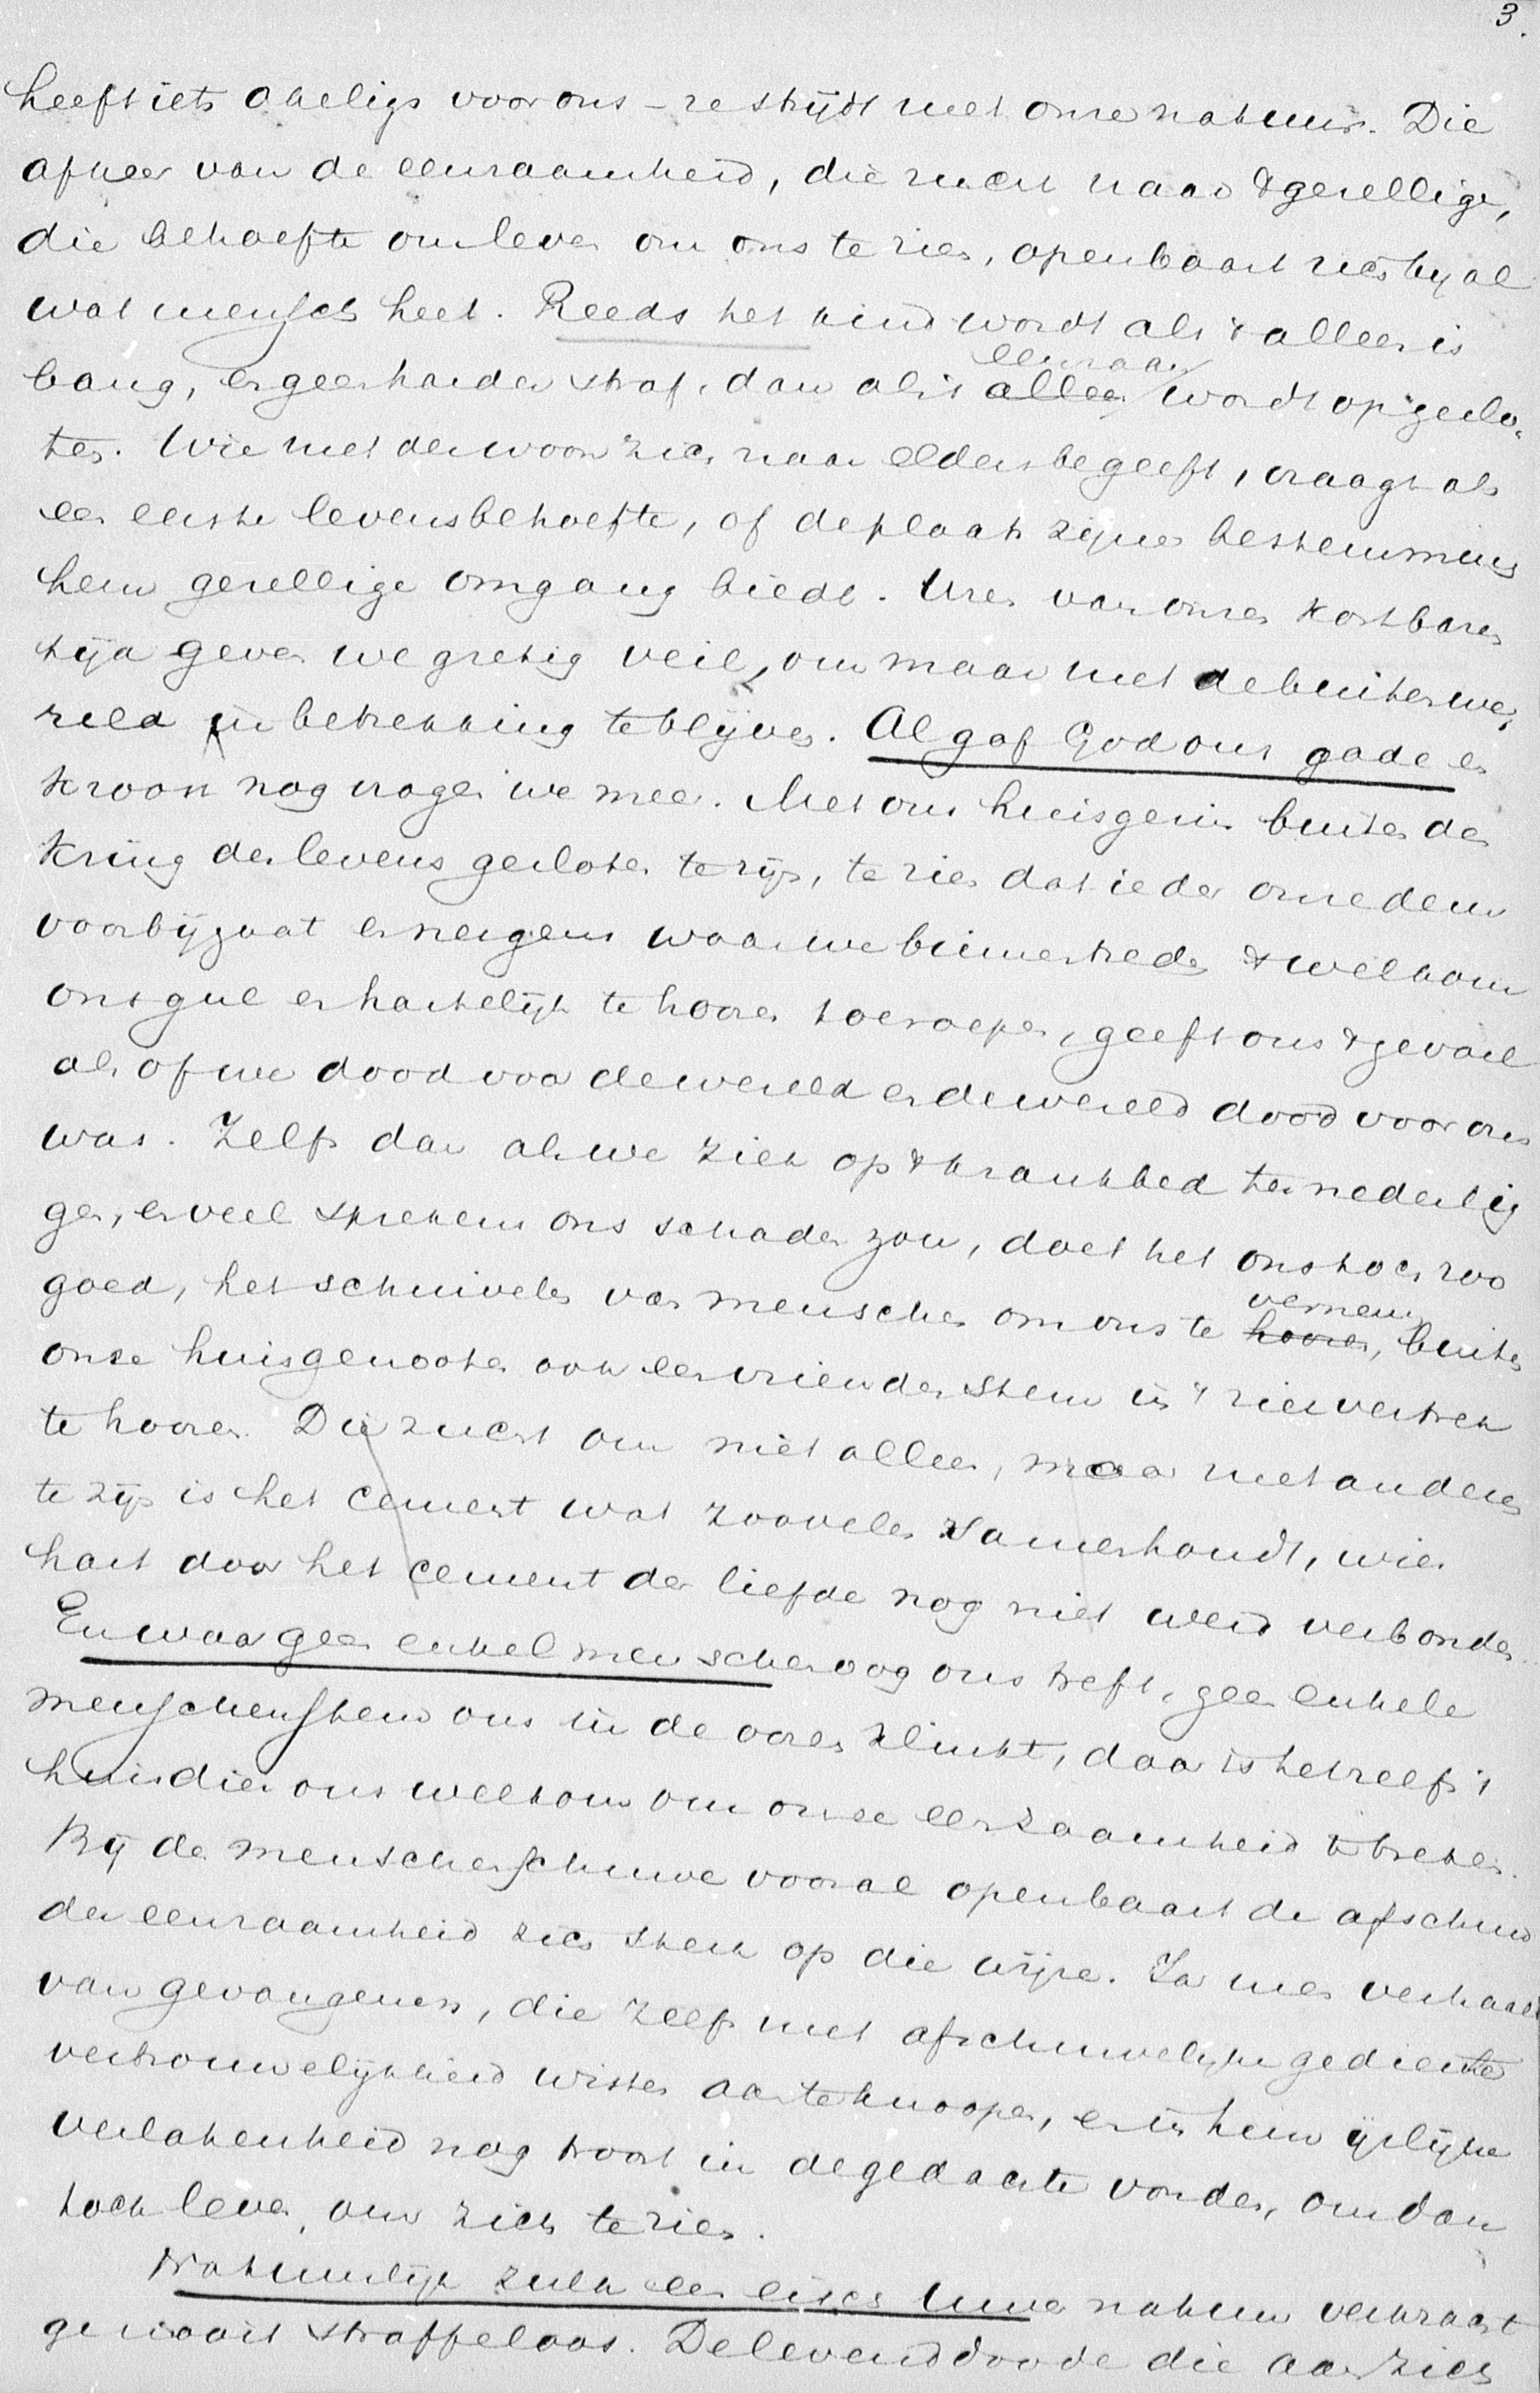 3.
heeft iets akeligs voor ons – ze strijdt met onze natuur. Die
afkeer van de eenzaamheid, die zucht naar 't gezellige,
die behoefte om leven om ons te zien, openbaart zich by al
wat mensch heet. Reeds het kind wordt als 't alleen is
bang, en geen harder straf, dan als 't alleen eenzaam wordt opgeslo-
ten. Wie met der woon zich naar elders begeeft, vraagt als
een eerste levensbehoefte, of de plaats zijner bestemming
hem gezellige omgang biedt. Uren van onzen kostbaren
tijd geven we gretig veil, om maar met de buitenwe-
reld in betrekking te blijven. Al gaf God ons gade en
kroost nog vragen we meer. Met ons huisgezin buiten den
kring des levens gesloten te zijn, te zien dat ieder onze deur
voorbijgaat en nergens waar we binnentreden 't welkom
ons gul en hartelijk te hooren toeroepen, geeft ons 't gevoel
als of we dood voor de wereld en de wereld dood voor ons
was. Zelfs dan als we ziek op 't krankbed ter nederlig
gen, en veel spreken ons schaden zou, doet het ons toch zoo
goed, het schuivelen van menschen om ons te hooren vernemen, buiten
onze huisgenooten ook een vriendenstem in 't ziekvertrek
te hooren. Die zucht om niet alleen, maar met anderen
te zijn is het cement wat zoovelen samenhoudt, wier
hart door het cement der liefde nog niet werd verbonden.
En waar geen enkel menschenoog ons treft, geen enkele
menschenstem ons in de ooren klinkt, daar is het zelfs 't
huisdier ons welkom om onze eenzaamheid te breken.
Bij de menschenschuwe vooral openbaart de afschuw
der eenzaamheid zich sterk op die wijze. Ja men verhaalt
van gevangenen, die zelfs met afschuwelijke gedierten
vertrouwelijkheid wisten aan te knoopen, en in hun ijslijke
verlatenheid nog troost in de gedachte vonden, om dan
toch leven om zich te zien.
Natuurlijk zulk een eisch uwer natuur verkracht
ge nooit straffeloos. De levenddoode die aan zich